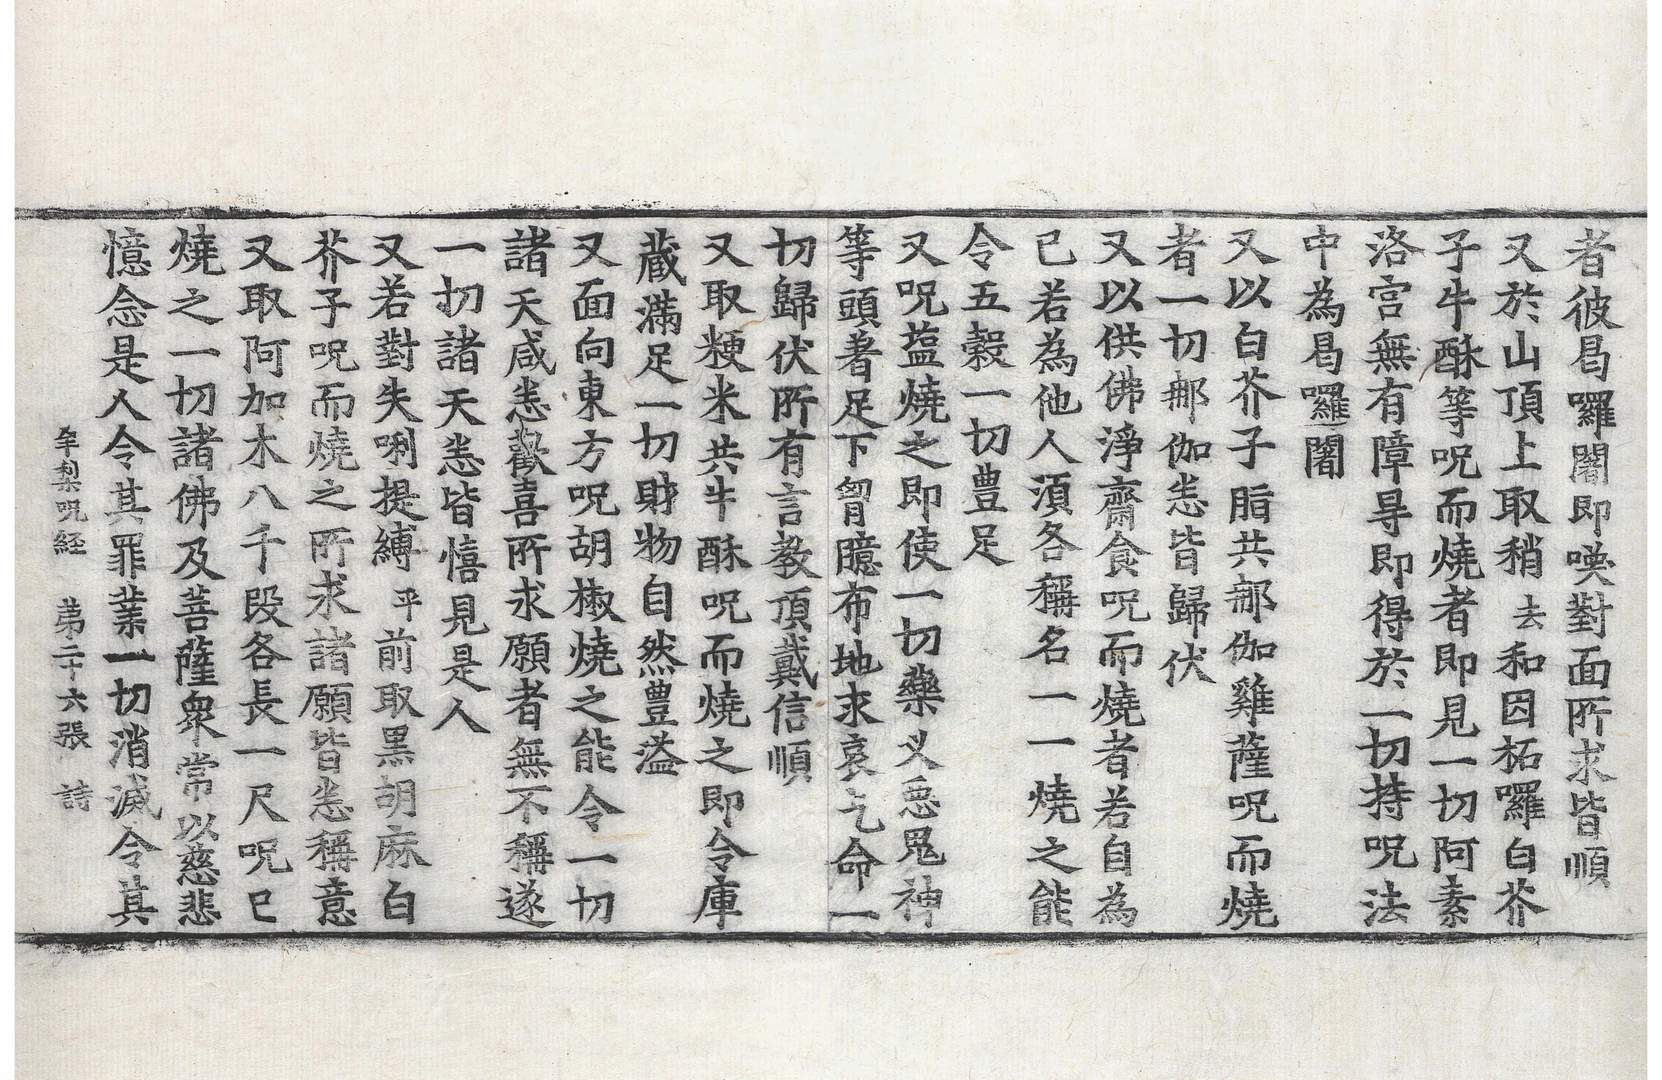 者彼曷囉闍即喚對面所求皆順
又於山頂上取稍去和因柘囉白芥
子牛酥等呪而燒者即見一切阿素
洛宮無有障㝵即得於一切持呪法
中為曷囉闍
又以白芥子脂共那伽雞薩呪而燒
者一切那伽悉皆歸伏
又以供佛淨齋食呪而燒者若自為
已若為他人須各稱名一一燒之能
令五穀一切豊足
又呪塩燒之即使一切藥义惡鬼神
等頭著足下胷臆布地求哀乞命一
切歸伏所有言教頂戴信順
又取粳米共牛酥呪而燒之即令庫
藏滿足一切財物自然豊溢
又面向東方呪胡椒燒之能令一切
諸天咸悉歡喜所求願者無不稱遂
一切諸天悉皆憘見是人
又若對失唎提縛平前取黒胡麻白
芥子呪而燒之所求諸願皆悉稱意
又取阿加木八千段各長一尺呪已
燒之一切諸佛及菩薩衆常以慈悲
憶念是人令其罪業一切消滅令其
牟梨呪経 第二十六張 詩